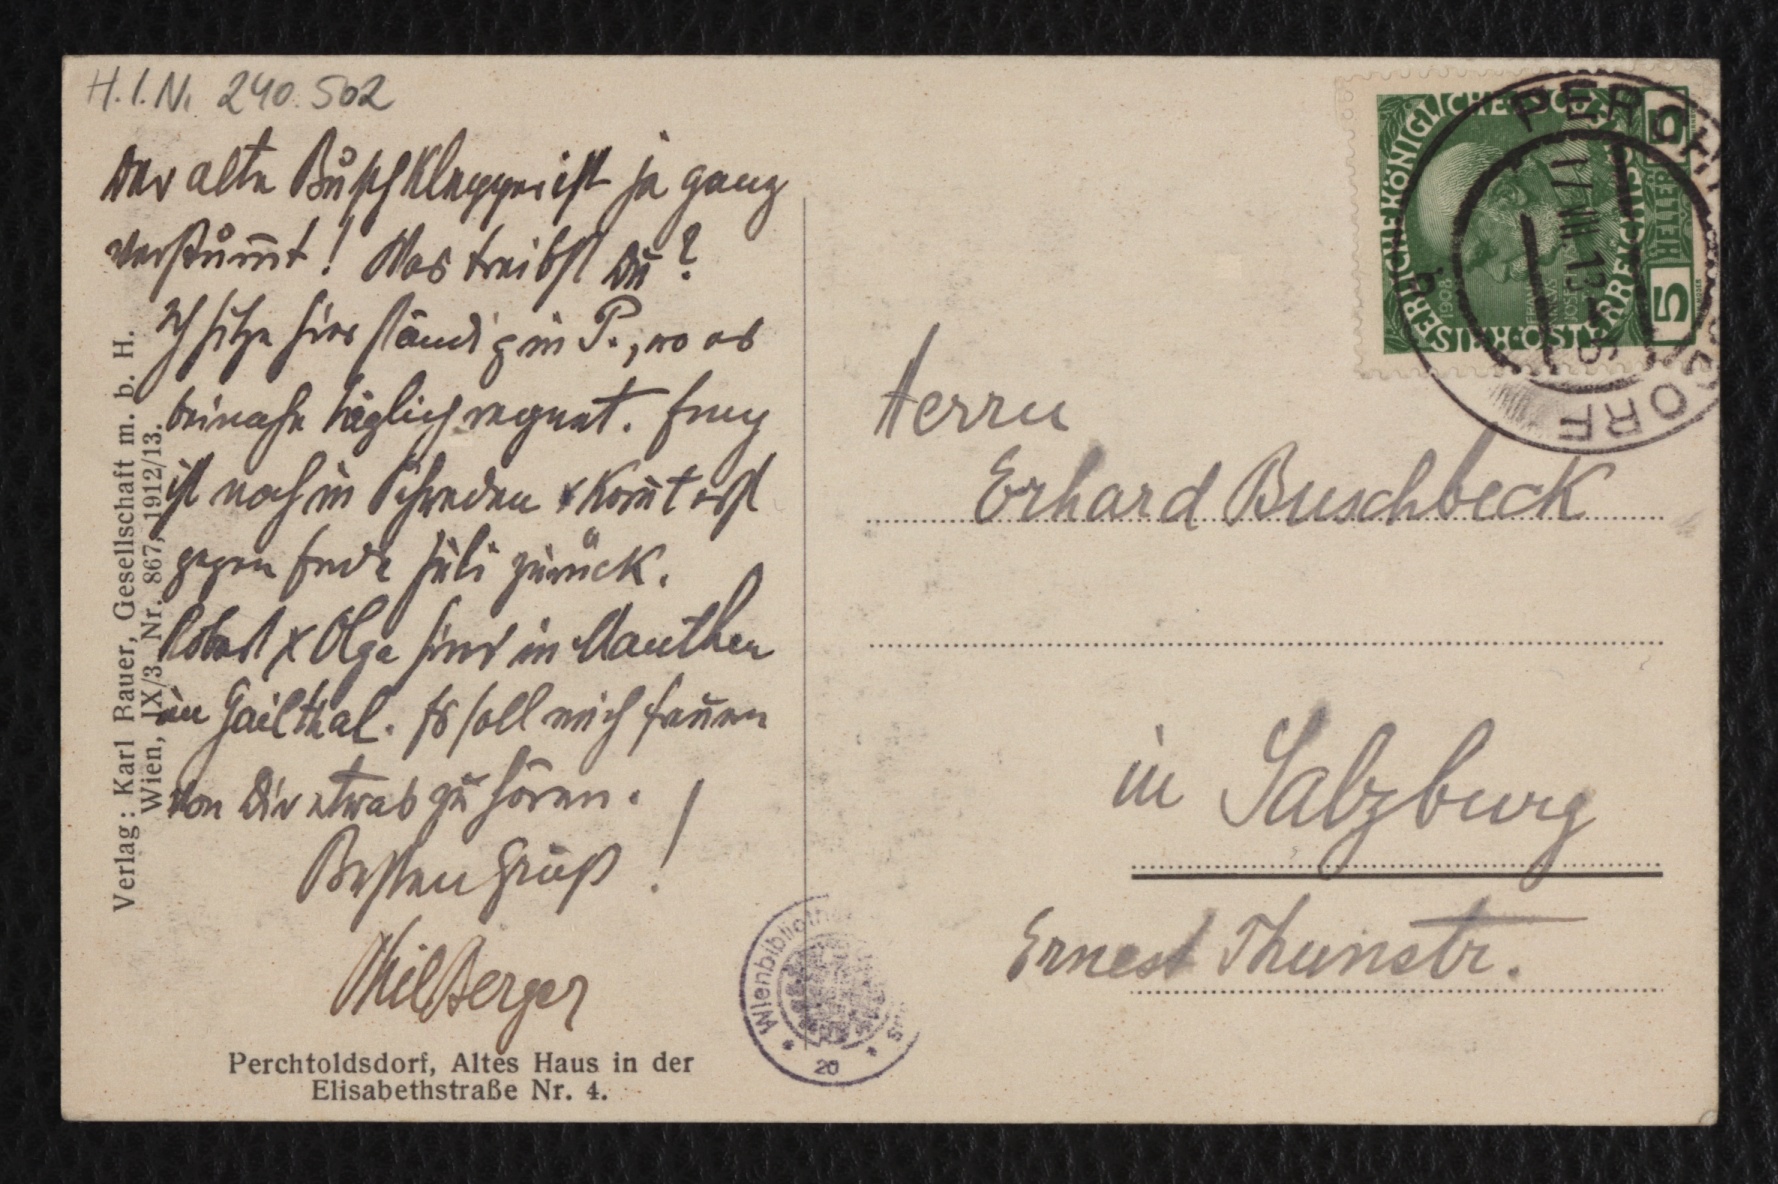 H.I.N. 240.502
Der alte Buschklepper ist ja ganz
verstum̅t! Was treibst Du?
Ich sitze hier ständig in P., wo es
beinahe täglich regnet. Eny
ist noch in Schweden & kom̅t erst
gegen Ende Juli zurück.
Robert & Olga sind in Mauthen
im Gailthal. Es soll mich freuen
von Dir etwas zu hören.
Besten Gruß!
Verlag: Karl Bauer, Gesellschaft m. b. H.
Wien, IX/3 Nr. 867, 1912/13.
Perchtoldsdorf, Altes Haus in der
Elisabethstraße Nr. 4.
PERCHTOLDSDORF
17 VII 13
5 HELLER 5
1908 FRANZ JOSEF
Herrn
Erhard Buschbeck
in Salzburg
Ernest Thunstr.
Wienbibliothek
20